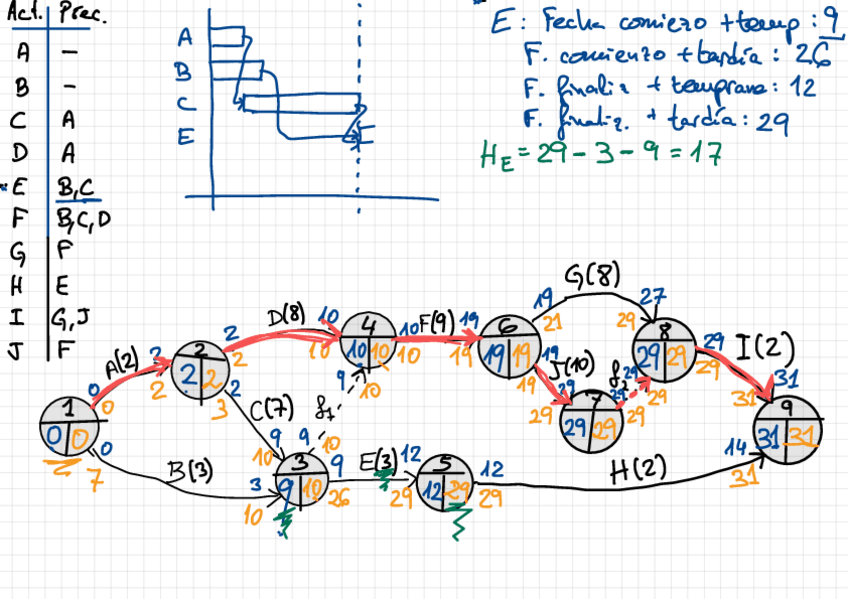 Act. Prec.
A -
B -
C A
D A
E B,C
F B,C,D
G F
H E
I G,J
J F
A
B
C
E
E: Fecha comiezo + temp: 9
F. comienzo + tardía: 26
F. finaliz + temprana: 12
F. finaliz. + tardía: 29
H_E = 29 - 3 - 9 = 17
G(8)
19 27
21 29
D(8) 10 10 F(9) 19 6 8 29 I(2)
2 10 4 10 19 19 19 29 29 29
A(2) 2 2 2 10 10 19 J(10) f2 29 31
2 2 2 3 2 9 10 19 29 29 29 31
0 0 C(7) f1 29 7 29 29 9
1 9 9 10 29 29 31 31
0 0 0 10 3 9 E(3) 12 5 12 H(2) 14
7 B(3) 3 9 10 26 29 12 29 29 31
10